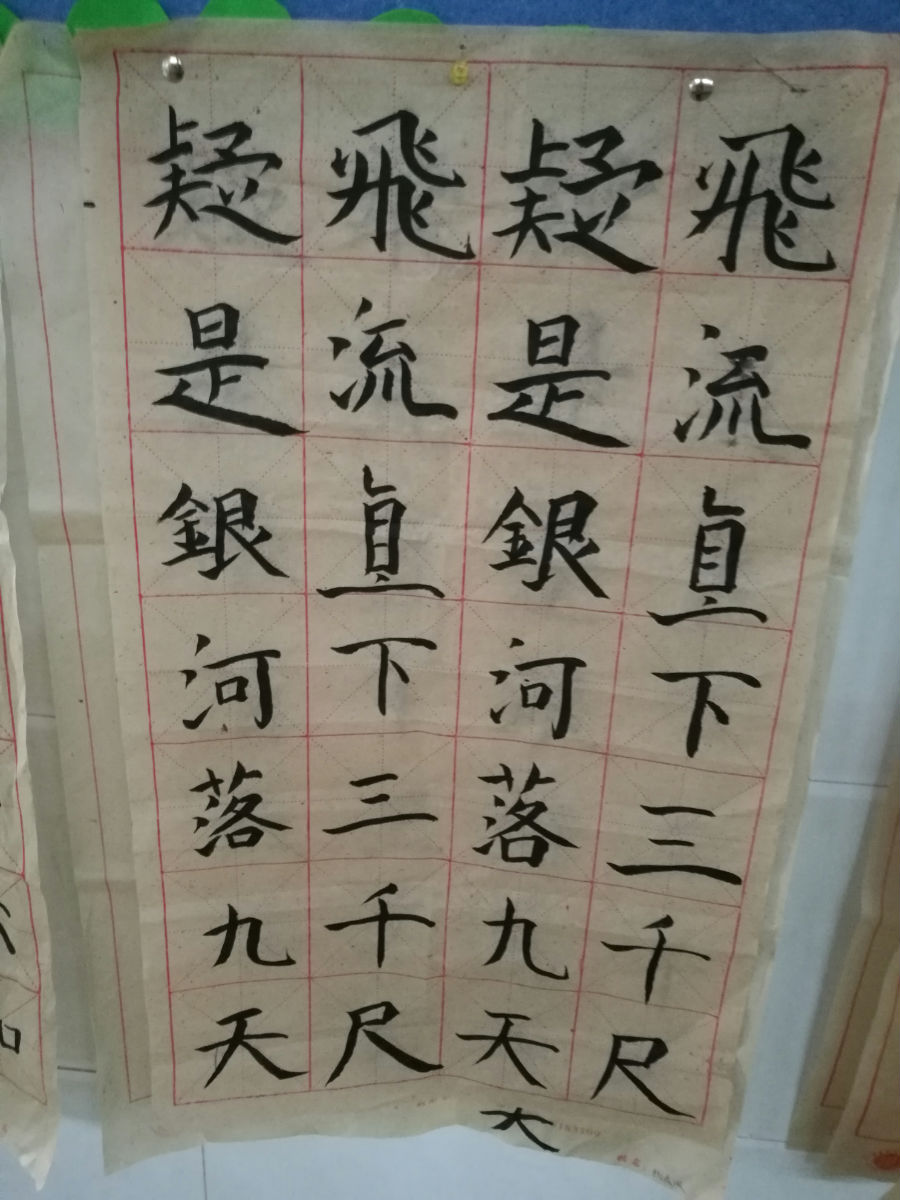 飛流直下三千尺
疑是銀河落九天
飛流直下三千尺
疑是銀河落九天